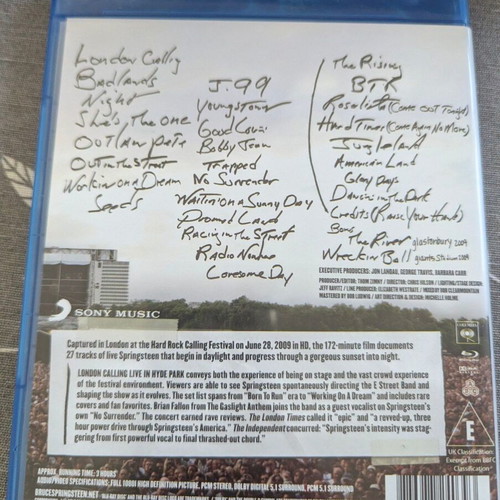 London Calling
Badlands
Night
She's The One
Outlaw Pete
Out in the Street
Workin on a Dream
Seeds
J.99
Youngstown
Good Lovin
Bobby Jean
Trapped
No Surrender
Waitin on a Sunny Day
Promised Land
Racing in the Street
Radio Nowhere
Lonesome Day
The Rising
BTR
Rosalita (Come Out Tonight)
Hard Times (Come Again No More)
Jungleland
American Land
Glory Days
Dancin in the Dark
Credits (Raise Your Hand)
Bonus
The River glastonbury 2009
Wreckin Ball giants stadium 2009
EXECUTIVE PRODUCERS: JON LANDAU, GEORGE TRAVIS, BARBARA CARR
PRODUCER/EDITOR: THOM ZIMNY / DIRECTOR: CHRIS HILSON / LIGHTING/STAGE DESIGN:
JEFF RAVITZ / LINE PRODUCER: ELIZABETH WESTRATE / MIXED BY BOB CLEARMOUNTAIN
MASTERED BY BOB LUDWIG / ART DIRECTION & DESIGN: MICHELLE HOLME
SONY MUSIC
COLUMBIA
Captured in London at the Hard Rock Calling Festival on June 28, 2009 in HD, the 172-minute film documents
27 tracks of live Springsteen that begin in daylight and progress through a gorgeous sunset into night.
LONDON CALLING LIVE IN HYDE PARK conveys both the experience of being on stage and the vast crowd experience
of the festival environment. Viewers are able to see Springsteen spontaneously directing the E Street Band and
shaping the show as it evolves. The set list spans from "Born To Run" era to "Working On A Dream" and includes
rare covers and fan favorites. Brian Fallon from The Gaslight Anthem joins the band as a guest vocalist on Springsteen's
own "No Surrender." The concert earned rave reviews. The London Times called it "epic" and "a revved-up, three
hour power drive through Springsteen's America." The Independent concurred: "Springsteen's intensity was stag-
gering from first powerful vocal to final thrashed-out chord."
E
UK Classification:
Exempt from BBFC
Classification
APPROX. RUNNING TIME: 3 HOURS
AUDIO/VIDEO SPECIFICATIONS: FULL 1080I HIGH DEFINITION PICTURE, PCM STEREO, DOLBY DIGITAL 5.1 SURROUND, PCM 5.1 SURROUND
BRUCESPRINGSTEEN.NET